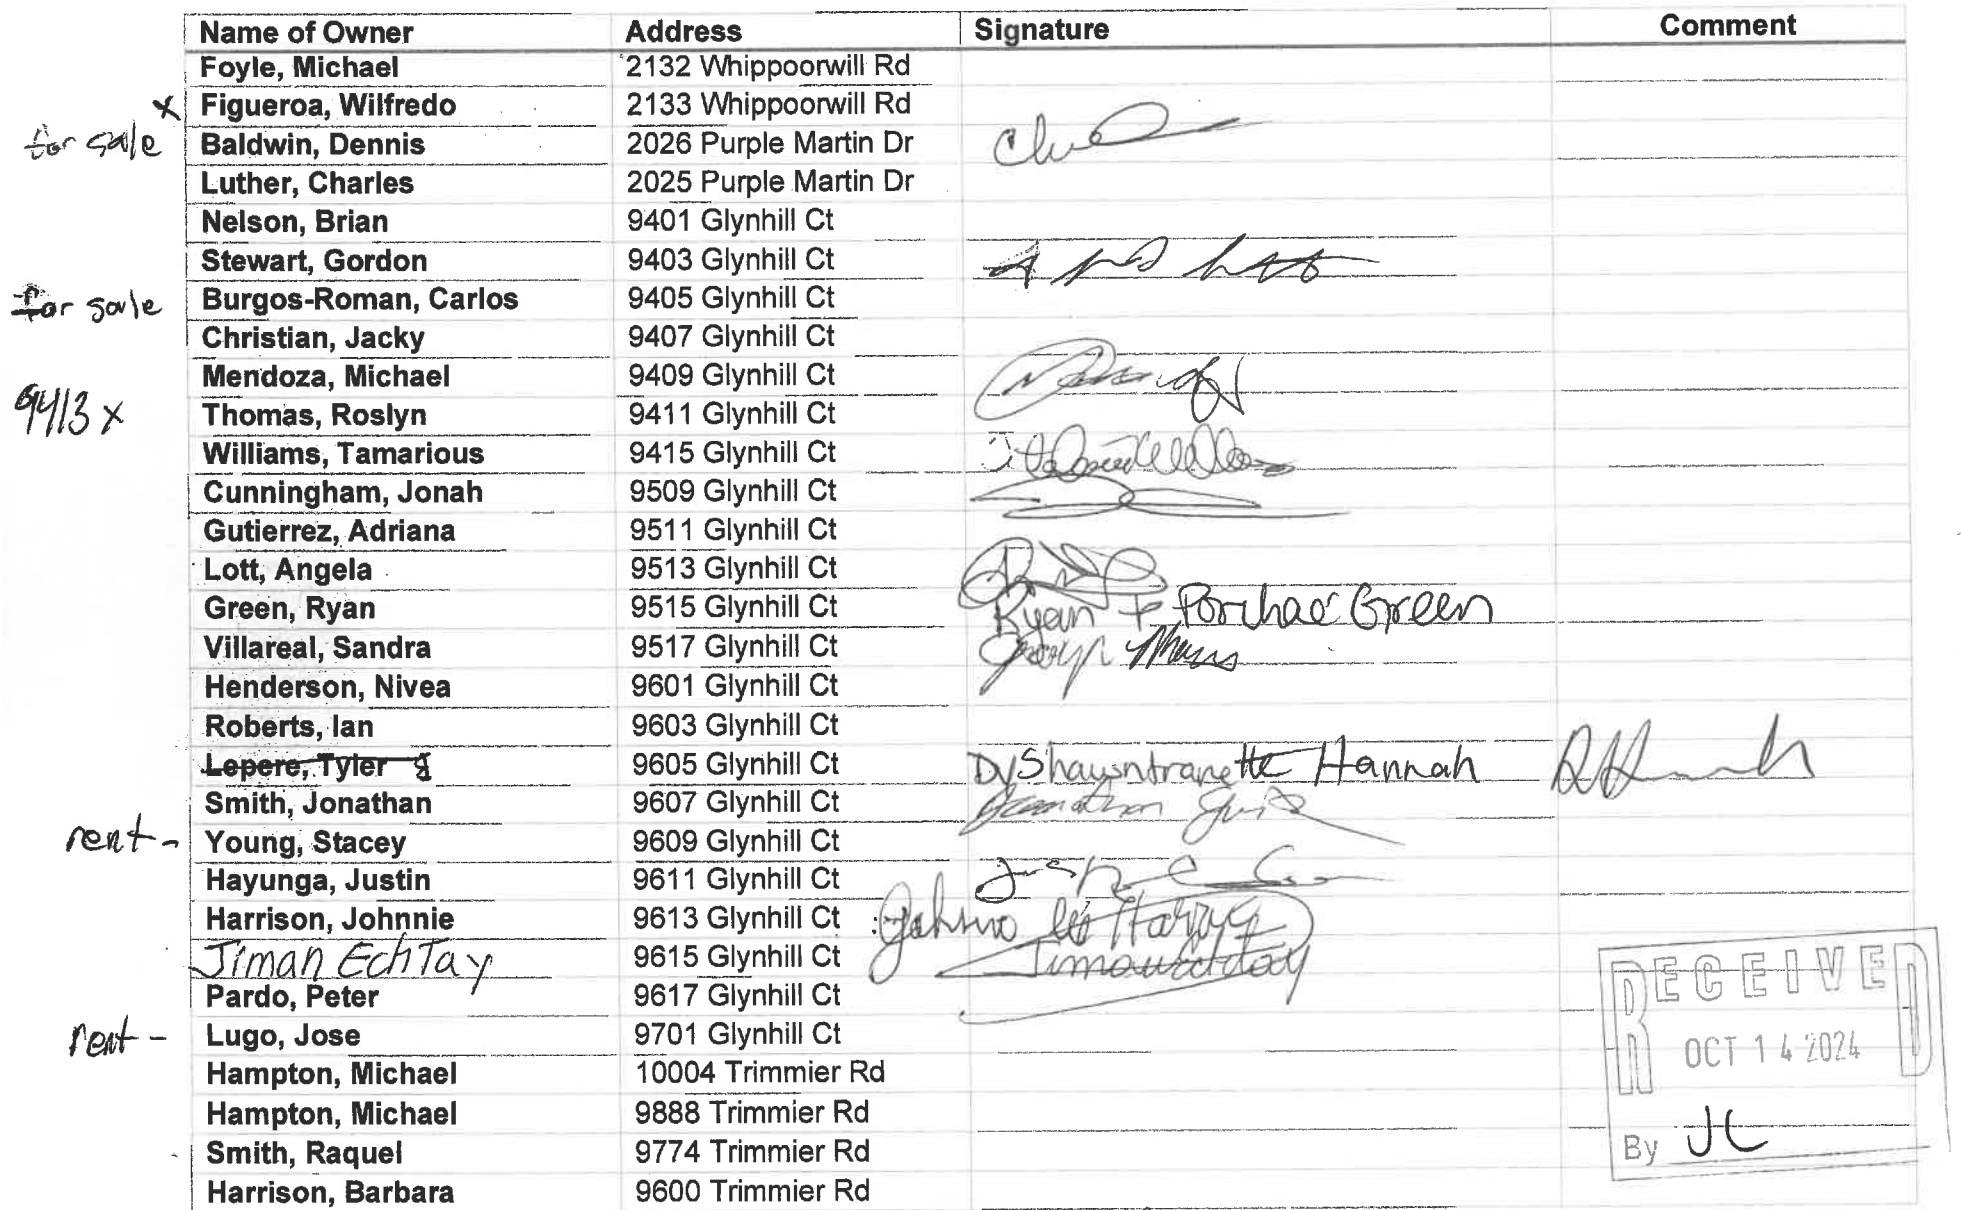 Name of Owner Address Signature Comment
Foyle, Michael 2132 Whippoorwill Rd
x Figueroa, Wilfredo 2133 Whippoorwill Rd
for sale Baldwin, Dennis 2026 Purple Martin Dr
Luther, Charles 2025 Purple Martin Dr
Nelson, Brian 9401 Glynhill Ct
Stewart, Gordon 9403 Glynhill Ct
for sale Burgos-Roman, Carlos 9405 Glynhill Ct
Christian, Jacky 9407 Glynhill Ct
Mendoza, Michael 9409 Glynhill Ct
9413 x Thomas, Roslyn 9411 Glynhill Ct
Williams, Tamarious 9415 Glynhill Ct
Cunningham, Jonah 9509 Glynhill Ct
Gutierrez, Adriana 9511 Glynhill Ct
Lott, Angela 9513 Glynhill Ct
Green, Ryan 9515 Glynhill Ct Ryan + Porchae Green
Villareal, Sandra 9517 Glynhill Ct
Henderson, Nivea 9601 Glynhill Ct
Roberts, Ian 9603 Glynhill Ct
Lepere, Tyler 9605 Glynhill Ct DyShawntranette Hannah
Smith, Jonathan 9607 Glynhill Ct
rent - Young, Stacey 9609 Glynhill Ct
Hayunga, Justin 9611 Glynhill Ct
Harrison, Johnnie 9613 Glynhill Ct
Jiman EchTay 9615 Glynhill Ct
Pardo, Peter 9617 Glynhill Ct
rent - Lugo, Jose 9701 Glynhill Ct
Hampton, Michael 10004 Trimmier Rd
Hampton, Michael 9888 Trimmier Rd
Smith, Raquel 9774 Trimmier Rd
Harrison, Barbara 9600 Trimmier Rd
RECEIVED
OCT 14 2024
By JC